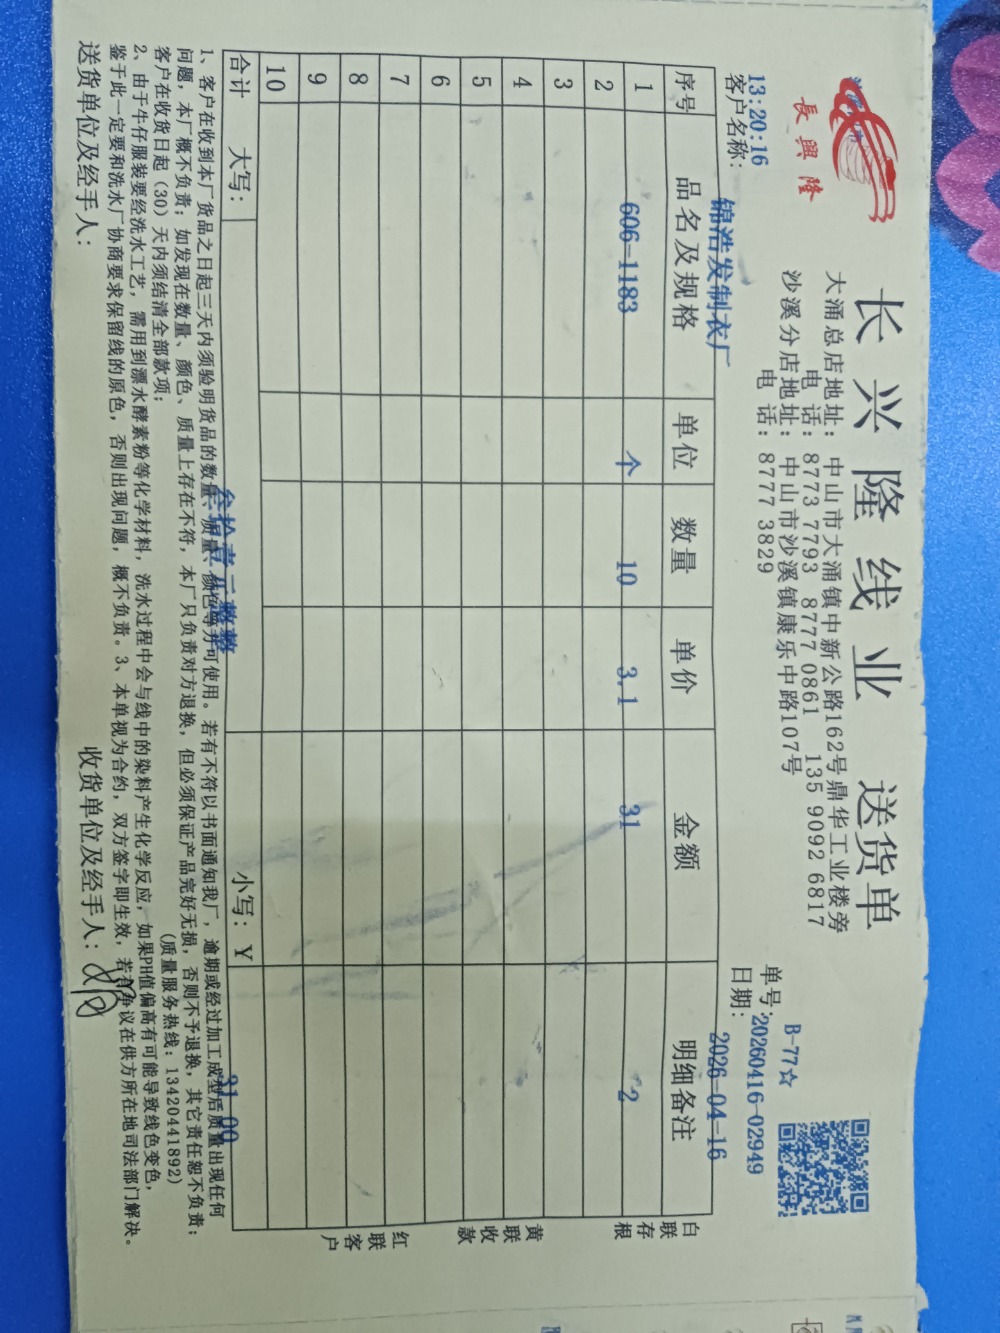 長興隆
长兴隆线业 送货单
大涌总店地址：中山市大涌镇中新公路162号鼎华工业楼旁
电 话：8773 7793 8777 0861 135 9092 6817
沙溪分店地址：中山市沙溪镇康乐中路107号
电 话：8777 3829
B-77☆
单号：20260416-02949
13:20:16
客户名称：锦浩发制衣厂
日期：2026-04-16
序号 品名及规格 单位 数量 单价 金额 明细备注
1 606-1183 个 10 3.1 31 2
2
3
4
5
6
7
8
9
10
合计 大写：叁拾壹元整 小写：Y 31.00
白联存根
黄联收款
红联客户
1、客户在收到本厂货品之日起三天内须验明货品的数量、质量、颜色等并可使用。若有不符以书面通知我厂，逾期或经过加工成型后质量出现任何
问题，本厂概不负责；如发现在数量、颜色、质量上存在不符，本厂只负责对方退换，但必须保证产品完好无损，否则不予退换，其它责任恕不负责；
客户在收货日起（30）天内须结清全部款项； （质量服务热线：13420441892）
2、由于牛仔服装要经洗水工艺，需用到漂水酵素粉等化学材料，洗水过程中会与线中的染料产生化学反应，如果PH值偏高有可能导致线色变色，
鉴于此一定要和洗水厂协商要求保留线的原色，否则出现问题，概不负责。3、本单视为合约，双方签字即生效，若有争议在供方所在地司法部门解决。
送货单位及经手人： 收货单位及经手人：